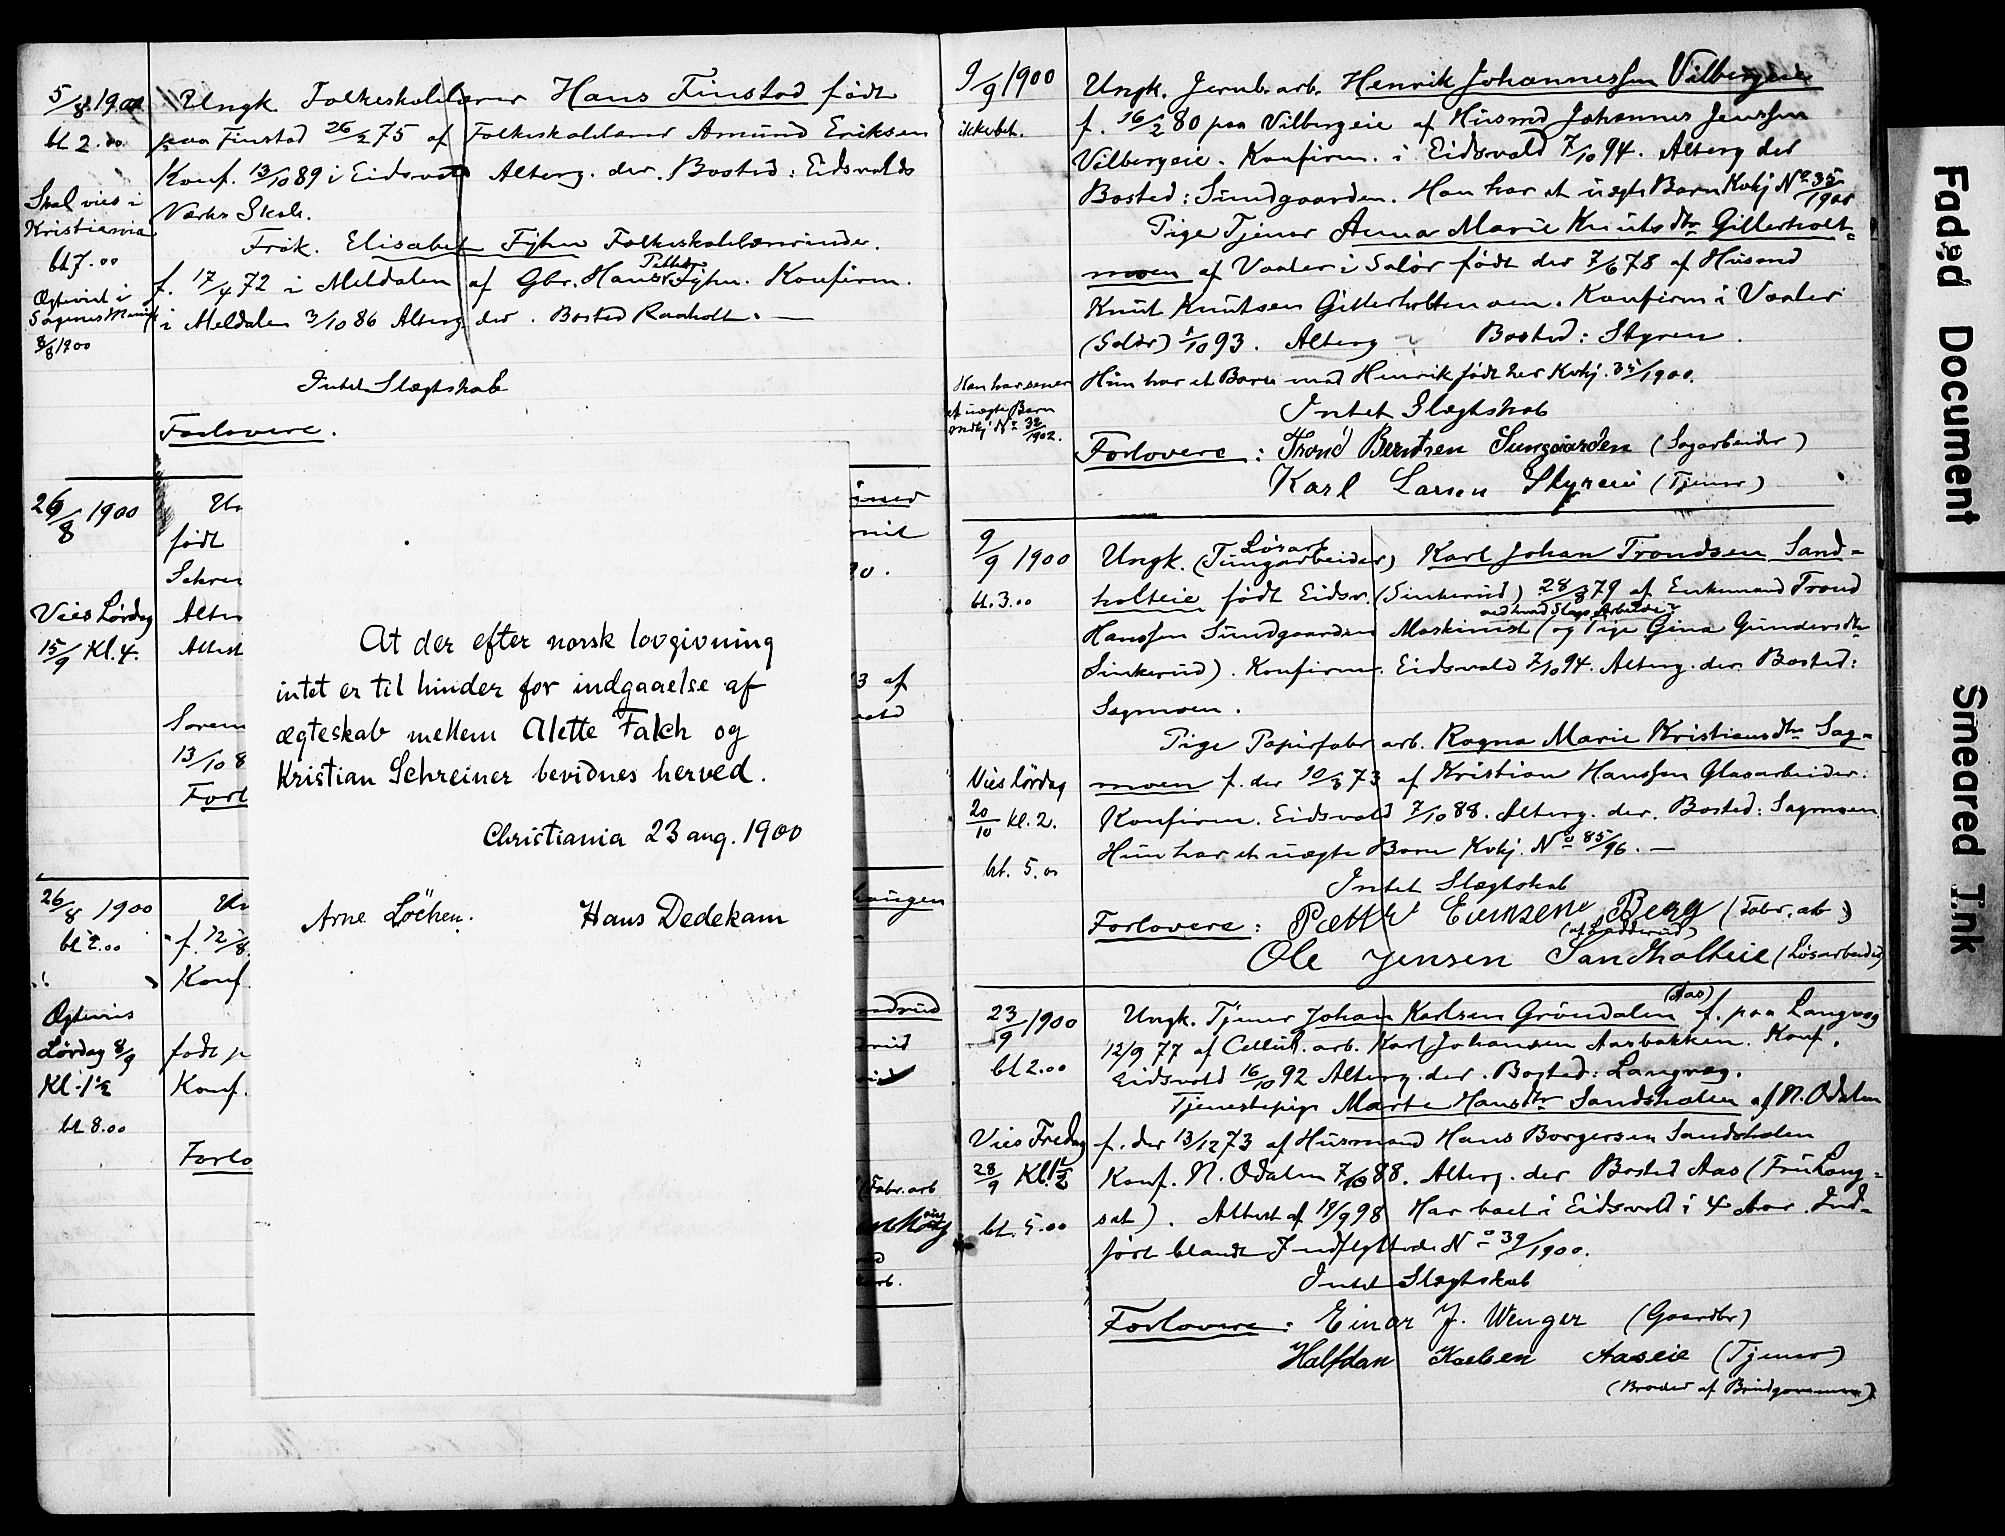 5/8 1900
bt 2.00
Skal vies i
Kristiania
bt 7.00
Ægteviet i
Sagenes Menigh
8/8 1900
Ungk Folkeskolelærer Hans Finstad født
paa Finstad 26/2 75 af Folkeskolelærer Amund Eriksen
Konf. 13/10 89 i Eidsvold Alterg. der. Bosted: Eidsvolds
Værks Skole.
Frøk. Elisabet Fyhn Folkeskolelærerinde.
f. 17/4 72 i Meldalen af Gbr. Hans Petter Fyhn. Konfirm.
i Meldalen 3/10 86 Alterg der. Bosted Raaholt. —
Intet Slægtskab
Forlovere.
26/8 1900
Vies Lørdag
15/9 Kl. 4.
født
Schrei
Alter
Attest
Sorem
13/10 8
Forl
af
At der efter norsk lovgivning
intet er til hinder for indgaaelse af
ægteskab mellem Alette Falch og
Kristian Schreiner bevidnes herved.
Christiania 23 aug. 1900
Arne Löchen. Hans Dedekam
26/8 1900
bt 2.00
Ægtevies
Lørdag 8/9
Kl. 1 1/2
bt 8.00
f. 12/8
Konf.
født p
Konf.
Forlo
haugen
(Fabr. arb
arb.
9/9 1900
ikke bet.
Ungk. Jernb. arb. Henrik Johannessen Vilbergeie
f. 16/2 80 paa Vilbergeie af Husmd Johannes Jenssen
Vilbergeie. Konfirm. i Eidsvold 7/10 94. Alterg der
Bosted: Sundgaarden. Han har et uægte Barn Kvkj No 35/1900
Pige Tjener Anna Marie Knutsdtr Gillerholt=
moen af Vaaler i Solør født der 7/6 78 af Husmd
Knut Knutsen Gillerholtmoen. Konfirm i Vaaler
(Solør) 1/10 93. Alterg Bosted: Styren.
Hun har et Barn med Henrik født her Kvkj. 35/1900.
Han har senere
et uægte Barn
Mdkj No 32/1902.
Intet Slægtskab
Forlovere: Trond Berntsen Sungaarden (Sagarbeider)
Karl Larsen Styreie (Tjener)
9/9 1900
bt. 3.00
Ungk. (Tungarbeider) Løsarb Karl Johan Trondsen Sand=
holteie født Eidsv. (Sinkerud) 28/8 79 af Enkemand Trond
Hanssen Sundgaarden Maskinist ved hvad Slags Arbeide (og Pige Gina Gundersdtr
Sinkerud). Konfirm. Eidsvold 7/10 94. Alterg. der Bosted:
Sagmoen.
Pige Papirfabr arb. Ragna Marie Kristiansdtr Sag=
moen f. der 10/3 73 af Kristian Hanssen Glasarbeider.
Konfirm. Eidsvold 7/10 88. Alterg. der. Bosted: Sagmoen
Hun har et uægte Barn Kvkj. No 85/96. —
Vies lördag
20/10 kl. 2.
bt. 5.00
Intet Slægtskab
Forlovere: Petter Evensen Berg (Fabr. arb)
Ole Jensen Sandholteie (Løsarbeider)
23/9 1900
bt 2.00
Ungk. Tjener Johan Karlsen Gröndalen (Aas) f. paa Langvag
12/9 77 af Cellul. arb. Karl Johansen Aasbakken. Konf.
Eidsvold 16/10 92 Alterg. der. Bosted: Langvag.
Tjenestepige Marte Hansdtr Sandsholen af N. Odalen
Vies Fredag
28/9 Kl. 1 1/2
bt. 5.00
f. der 13/12 73 af Husmand Hans Borgersen Sandsholen
Konf. N. Odalen 7/10 88. Alterg. der Bosted Aas (Fru Lang=
set). Attest af 19/9 98 Har boet i Eidsvold i 4 Aar. Ind=
ført blandt Indflyttede No 39/1900.
Intet Slægtskab
Forlovere: Einar J. Wenger (Gaardbr)
Halfdan Karlsen Aaseie (Tjener)
(Broder af Brudgommen)
Faded Document
Smeared Ink